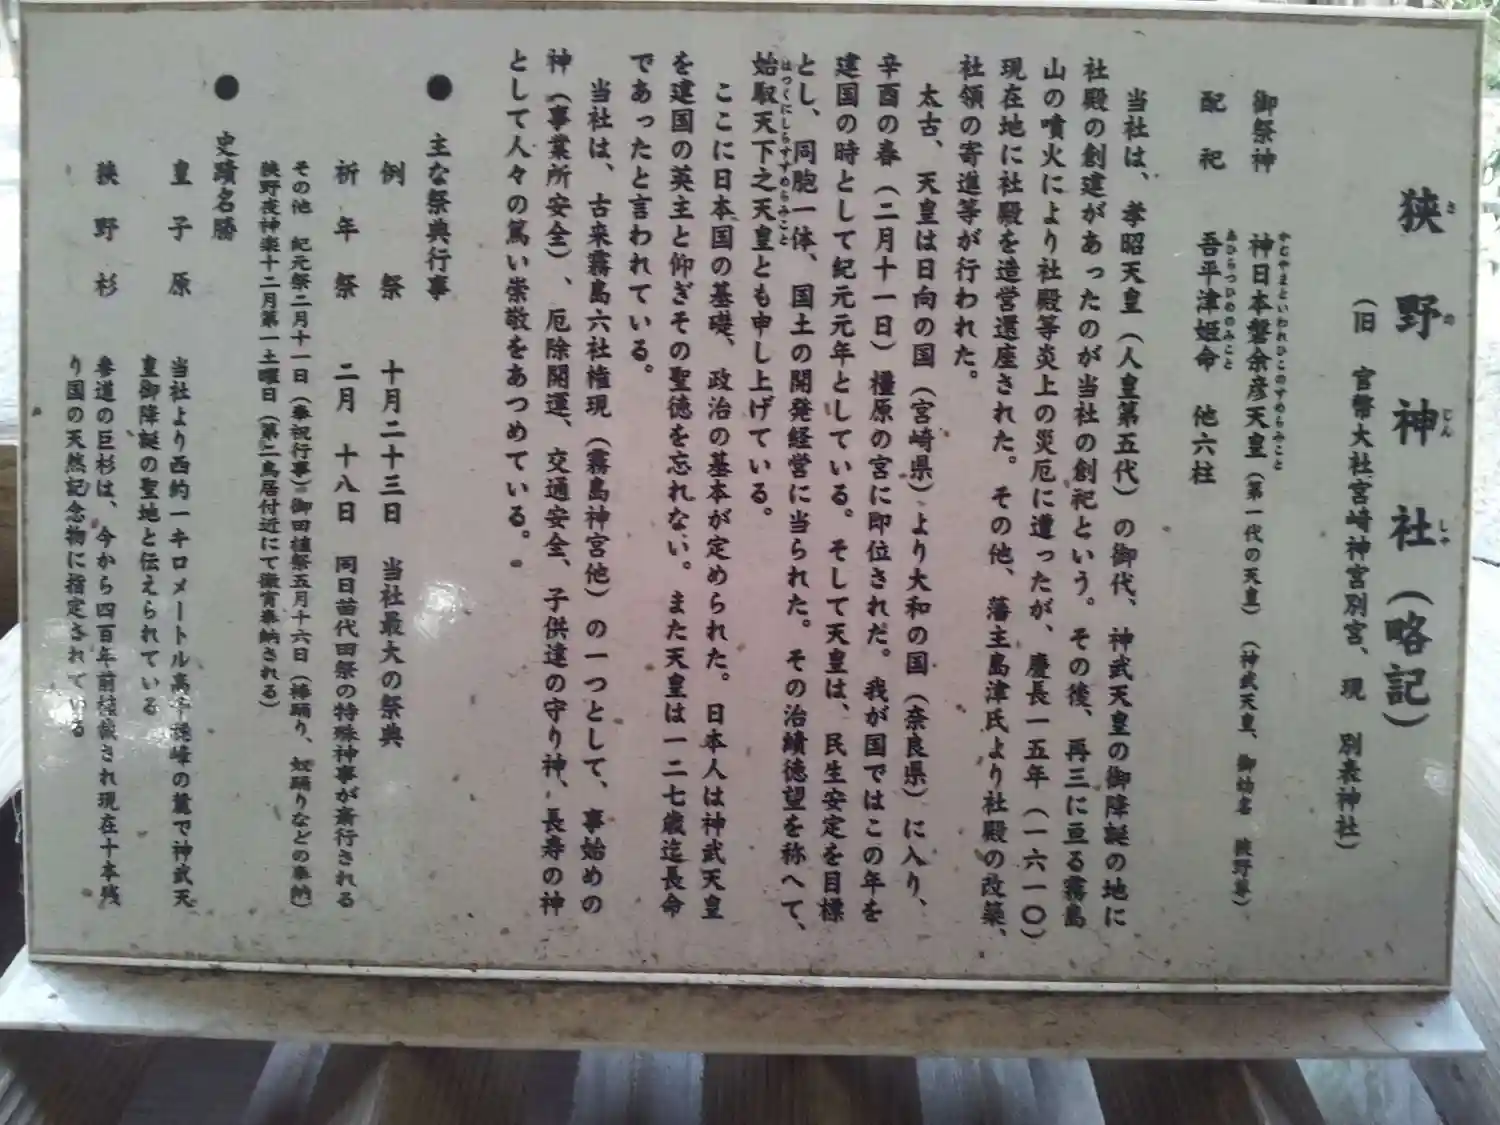 狭野神社(略記)
さのじんしゃ
(旧 官幣大社宮崎神宮別宮、現 別表神社)
御祭神 神日本磐余彦天皇(第一代の天皇)(神武天皇、御幼名 狭野尊)
かむやまといわれひこのすめらみこと
配祀 吾平津姫命 他六柱
あひらつひめのみこと
当社は、孝昭天皇(人皇第五代)の御代、神武天皇の御降誕の地に
社殿の創建があったのが当社の創祀という。その後、再三に亘る霧島
山の噴火により社殿等炎上の災厄に遭ったが、慶長一五年(一六一〇)
現在地に社殿を造営還座された。その他、藩主島津氏より社殿の改築、
社領の寄進等が行われた。
太古、天皇は日向の国(宮崎県)より大和の国(奈良県)に入り、
辛酉の春(二月十一日)橿原の宮に即位された。我が国ではこの年を
建国の時として紀元元年としている。そして天皇は、民生安定を目標
とし、同胞一体、国土の開発経営に当られた。その治績徳望を称へて、
始馭天下之天皇とも申し上げている。
はつくにしらすすめらみこと
ここに日本国の基礎、政治の基本が定められた。日本人は神武天皇
を建国の英主と仰ぎその聖徳を忘れない。また天皇は一二七歳迄長命
であったと言われている。
当社は、古来霧島六社権現(霧島神宮他)の一つとして、事始めの
神(事業所安全)、厄除開運、交通安全、子供達の守り神、長寿の神
として人々の篤い崇敬をあつめている。
●主な祭典行事
例祭 十月二十三日 当社最大の祭典
祈年祭 二月 十八日 同日苗代田祭の特殊神事が斎行される
その他 紀元祭二月十一日(奉祝行事)御田植祭五月十六日(棒踊り、奴踊りなどの奉納)
狭野夜神楽十二月第一土曜日(第二鳥居付近にて徹宵奉納される)
●史蹟名勝
皇子原 当社より西約一キロメートル高千穂峰の麓で神武天
皇御降誕の聖地と伝えられている
狭野杉 参道の巨杉は、今から四百年前植栽され現在十本残
り国の天然記念物に指定されている